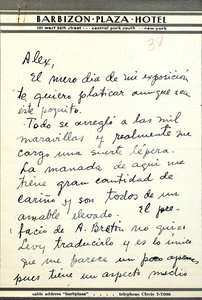 BARBIZON-PLAZA-HOTEL
101 west 58th street ... central park south ... new york
Alex,
El mero dia de mi exposición
te quiero platicar aunque sea
este poquito.
Todo se arregló a las mil
maravillas y realmente me
cargo una suerte lépera.
La manada de aqui me
tiene gran cantidad de
cariño y son todos de un
amable elevado. El pre-
facio de A. Breton no quizo
Levy traducirlo y es lo único
que me parece un poco apenas
pues tiene un aspecto medio
cable address "barbiplaza" ... telephone Circle 7-7000